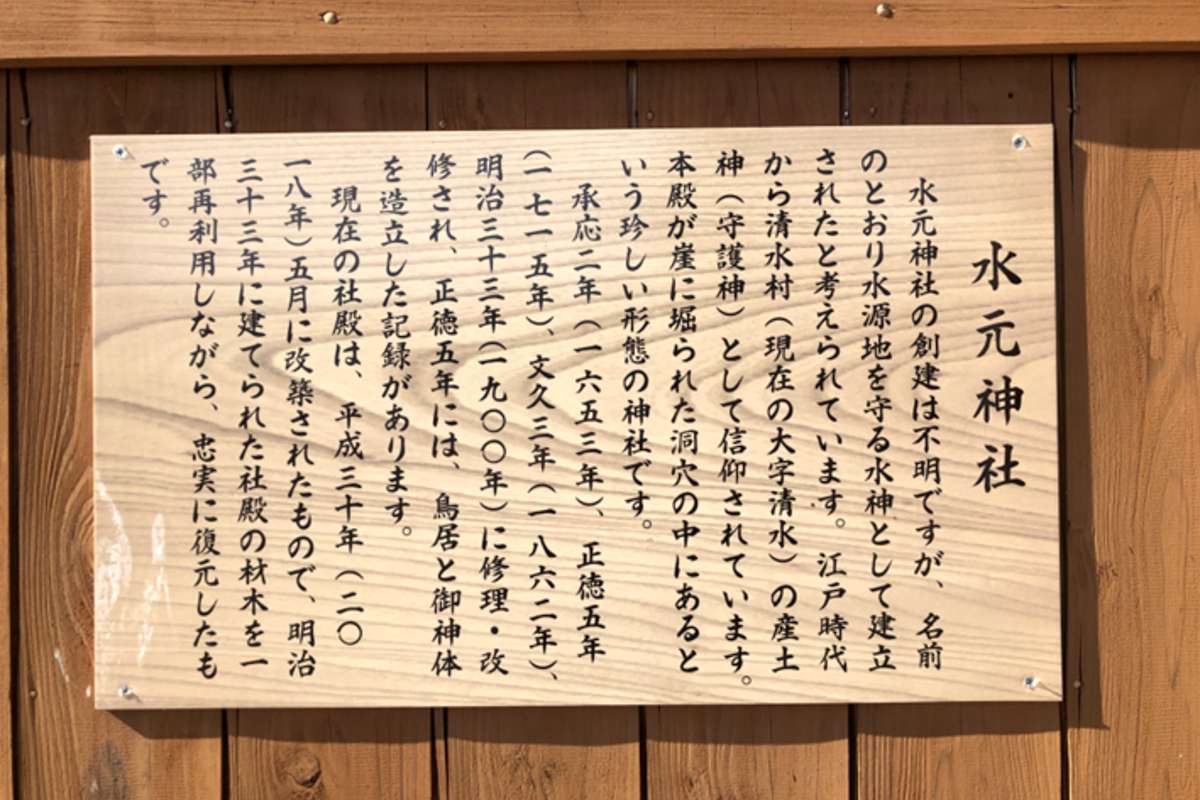 水元神社
水元神社の創建は不明ですが、名前
のとおり水源地を守る水神として建立
されたと考えられています。江戸時代
から清水村（現在の大字清水）の産土
神（守護神）として信仰されています。
本殿が崖に堀られた洞穴の中にあると
いう珍しい形態の神社です。
承応二年（一六五三年）、正徳五年
（一七一五年）、文久三年（一八六二年）、
明治三十三年（一九〇〇年）に修理・改
修され、正徳五年には、鳥居と御神体
を造立した記録があります。
現在の社殿は、平成三十年（二〇
一八年）五月に改築されたもので、明治
三十三年に建てられた社殿の材木を一
部再利用しながら、忠実に復元したも
です。